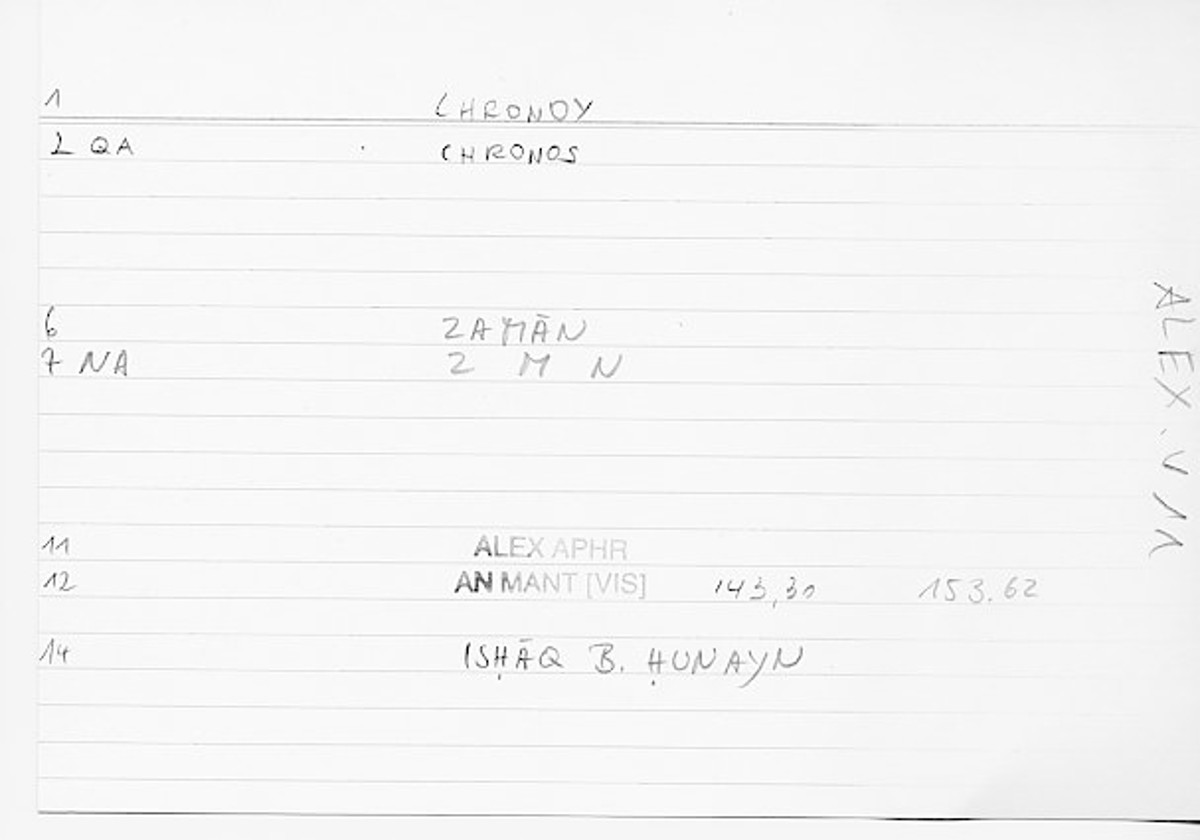 1 CHRONOY
2 QA CHRONOS
6 ZAMĀN
7 NA Z M N
11 ALEX APHR
12 AN MANT [VIS] 143,30 153.62
14 ISḤĀQ B. ḤUNAYN
ALEX. V 11